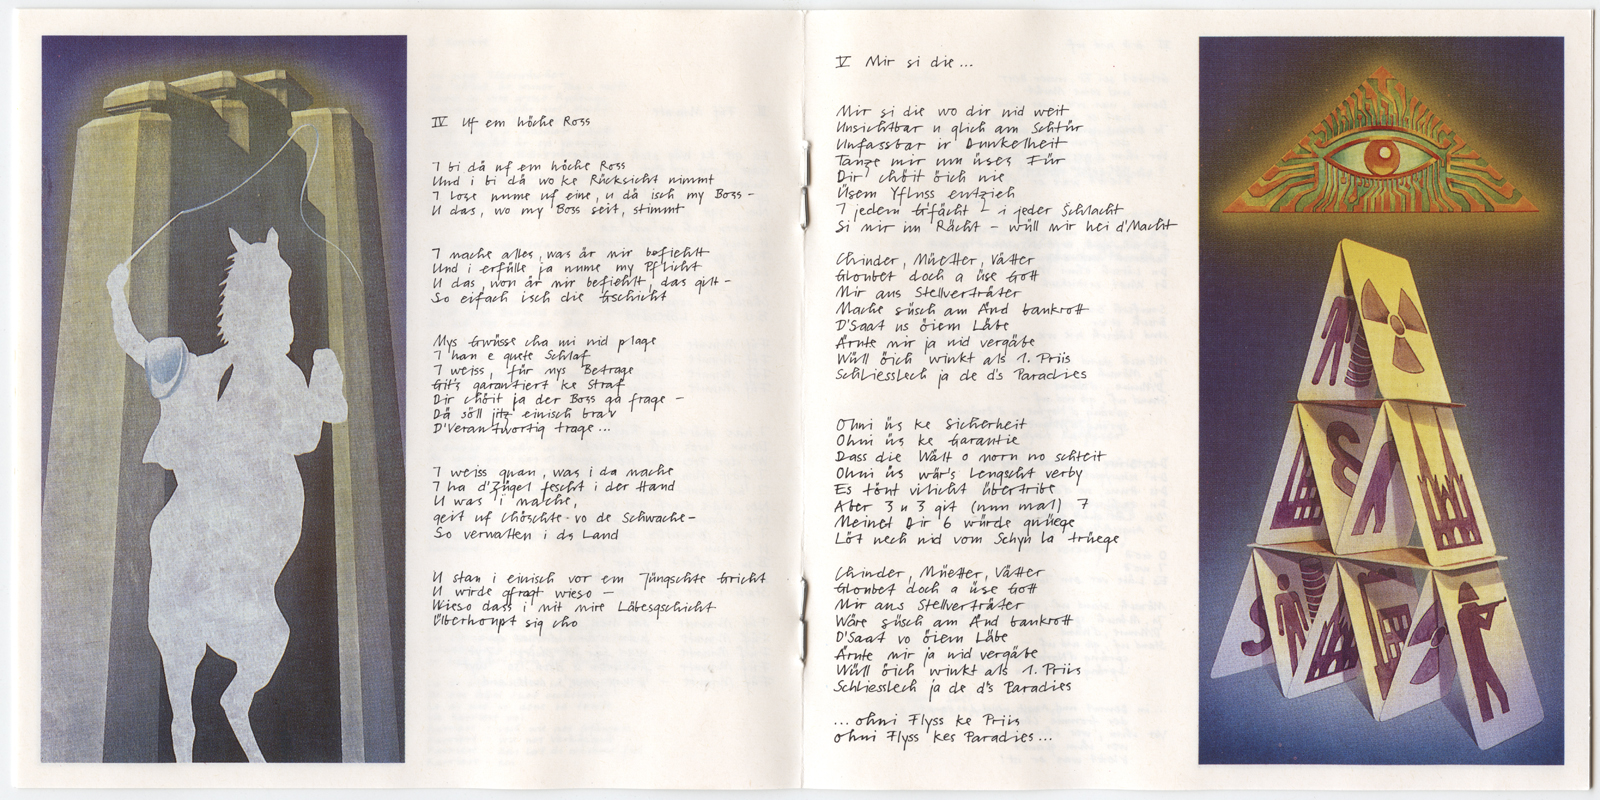 IV Uf em höche Ross
I bi dä uf em höche Ross
Und i bi dä wo ke Rücksicht nimmt
I lose nume uf eine, u dä isch my Boss –
U das, wo my Boss seit, stimmt
I mache alles, was är mir befiehlt
Und i erfülle ja nume my Pflicht
U das, won är mir befiehlt, das gilt –
So eifach isch die Gschicht
Mys Gwüsse cha mi nid plage
I han e guete Schlaf
I weiss, für mys Betrage
Git's garantiert ke Straf
Dir chöit ja der Boss ga frage –
Dä söll jitz einisch brav
D'Verantwortig trage...
I weiss gnau, was i da mache
I ha d'Zügel fescht i der Hand
U was i mache,
geit uf Chöschte vo de Schwache –
So verwalten i ds Land
U stan i einisch vor em Jüngschte Gricht
U wirde gfragt wieso –
Wieso dass i mit mire Läbesgschicht
Überhoupt sig cho
V Mir si die...
Mir si die wo dir nid weit
Unsichtbar u glich am Schtür
Unfassbar ir Dunkelheit
Tanze mir um üses Für
Dir chöit öich nie
Üsem Yfluss entzieh
I jedem G'fächt – i jeder Schlacht
Si mir im Rächt – wüll mir hei d'Macht
Chinder, Müetter, Vätter
Gloubet doch a üse Gott
Mir aus Stellverträter
Mache süsch am Änd bankrott
D'Saat us öiem Läbe
Ärnte mir ja nid vergäbe
Wüll öich winkt als 1. Priis
Schliesslech ja de d's Paradies
Ohni üs ke Sicherheit
Ohni üs ke Garantie
Dass die Wält o morn no schteit
Ohni üs wär's lengscht verby
Es tönt vilicht übertribe
Aber 3 u 3 git (nun mal) 7
Meinet Dir 6 würde gnüege
Löt nech nid vom Schyn la trüege
Chinder, Müetter, Vätter
Gloubet doch a üse Gott
Mir aus Stellverträter
Wäre süsch am Änd bankrott
D'Saat vo öiem Läbe
Ärnte mir ja nid vergäbe
Wüll öich winkt als 1. Priis
Schliesslech ja de d's Paradies
... ohni Flyss ke Priis
ohni Flyss kes Paradies...